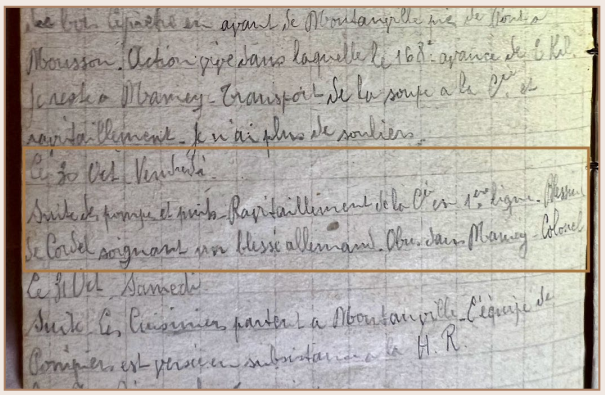 des bois Lépêtre en avant de Montauville près de Pont a
Mousson. Action vive dans laquelle le 168e avance de 2 Kil.
Je reste a Mamey - Transport de la soupe a la Cie et
ravitaillement - Je n'ai plus de souliers.
Le 30 Oct Vendredi.
Suite de pompe et puits - Ravitaillement de la Cie en 1ère ligne. Blessure
de Cordel soignant un blessé allemand. Obus dans Mamey - Colonel
Le 31 Oct Samedi
Suite - Les Cuisiniers partent a Montauville - L'équipe de
Pompiers est versée en subsistance a la H. R.